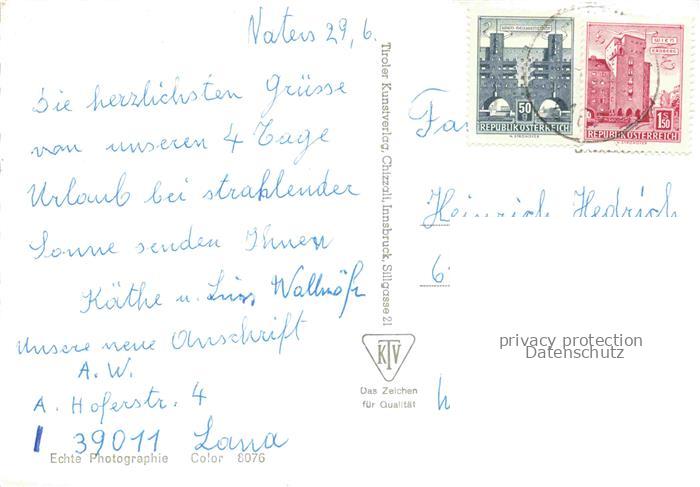 Naters 29.6.
Die herzlichsten Grüsse
von unseren 4 Tage
Urlaub bei strahlender
Sonne senden Ihnen
Käthe u. Wallnöfer
Unsere neue Anschrift
A. W.
A. Hoferstr. 4
I 39011 Lana
Echte Photographie Color 8076
Tiroler Kunstverlag, Chizzali, Innsbruck, Sillgasse 21
KTV
Das Zeichen
für Qualität
50
g
REPUBLIK ÖSTERREICH
WIEN
ERDBERG
S
1.50
REPUBLIK ÖSTERREICH
Fa
Heinrich Hedrich
6
privacy protection
Datenschutz